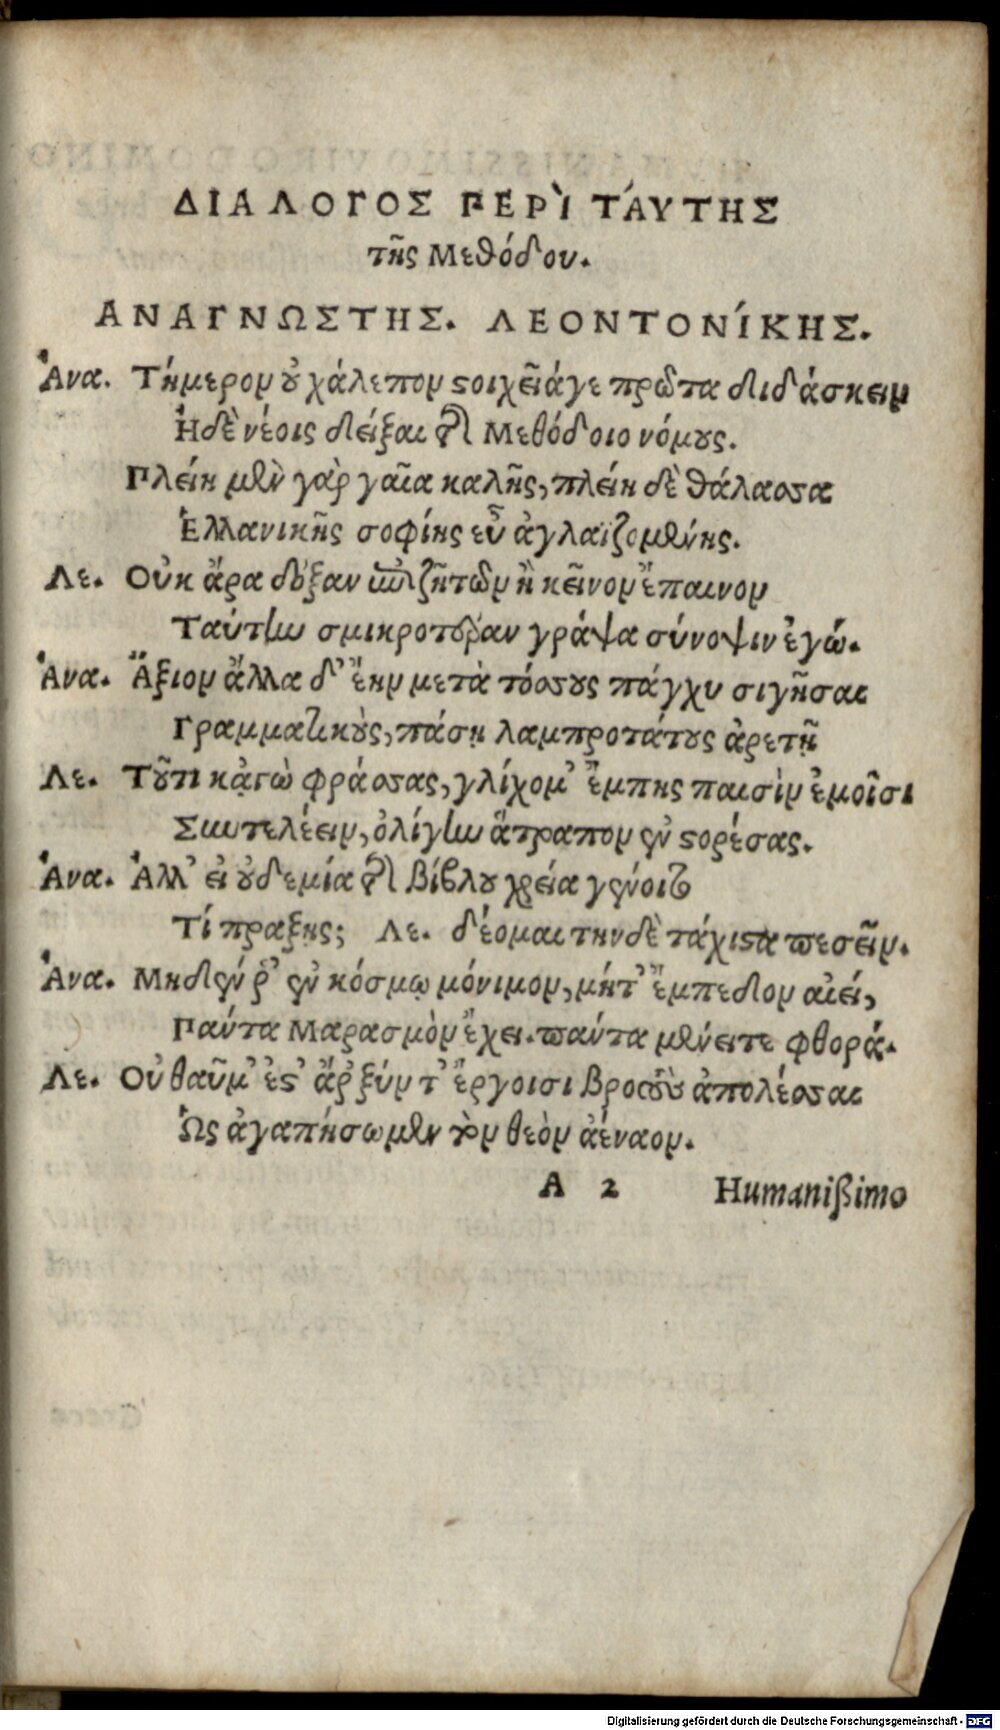 ΔΙΑΛΟΓΟΣ ΠΕΡῚ ΤΆΥΤΗΣ
τῆς Μεθόδου.
ΑΝΑΓΝΩΣΤΗΣ. ΛΕΟΝΤΟΝΊΚΗΣ.
Ἀνα. Τήμερον οὐ χάλεπον στοιχεῖά γε πρῶτα διδάσκειν
Ἠδὲ νέοις δεῖξαι τῆς Μεθόδοιο νόμους.
Πλείη μὲν γὰρ γαῖα καλῆς, πλείη δὲ θάλασσα
Ἑλλανικῆς σοφίης εὖ ἀγλαϊζομένης.
Λε. Οὐκ ἄρα δόξαν ἐπιζητῶν ἢ κεῖνον ἔπαινον
Ταύτην σμικροτέραν γράψα σύνοψιν ἐγώ.
Ἀνα. Ἄξιον ἄλλα δ' ἔην μετὰ τόσσους πάγχυ σιγῆσαι
Γραμματικοὺς, πάσῃ λαμπροτάτους ἀρετῇ
Λε. Τοῦτι κᾀγὼ φράσσας, γλίχομ' ἔμπης παισὶν ἐμοῖσι
Συντελέειν, ὀλίγην ἄτραπον ἐν στορέσας.
Ἀνα. Ἀλλ' εἰ οὐδεμία τῆς βίβλου χρεία γένοιτο
Τί πραξῃς; Λε. δέομαι τηνδὲ τάχιστα πεσεῖν.
Ἀνα. Μηδὲν ῥ' ἐν κόσμῳ μόνιμον, μήτ' ἔμπεδον αἰεί,
Πάντα Μαρασμὸν ἔχει. πάντα μένειτε φθορά.
Λε. Οὐ θαῦμ' ἐστ' ἄρ ξύν τ' ἔργοισι βροτοὺς ἀπολέσσαι
Ὡς ἀγαπήσωμεν τὸν θεὸν ἀέναον.
A 2 Humanißimo
Digitalisierung gefördert durch die Deutsche Forschungsgemeinschaft - DFG